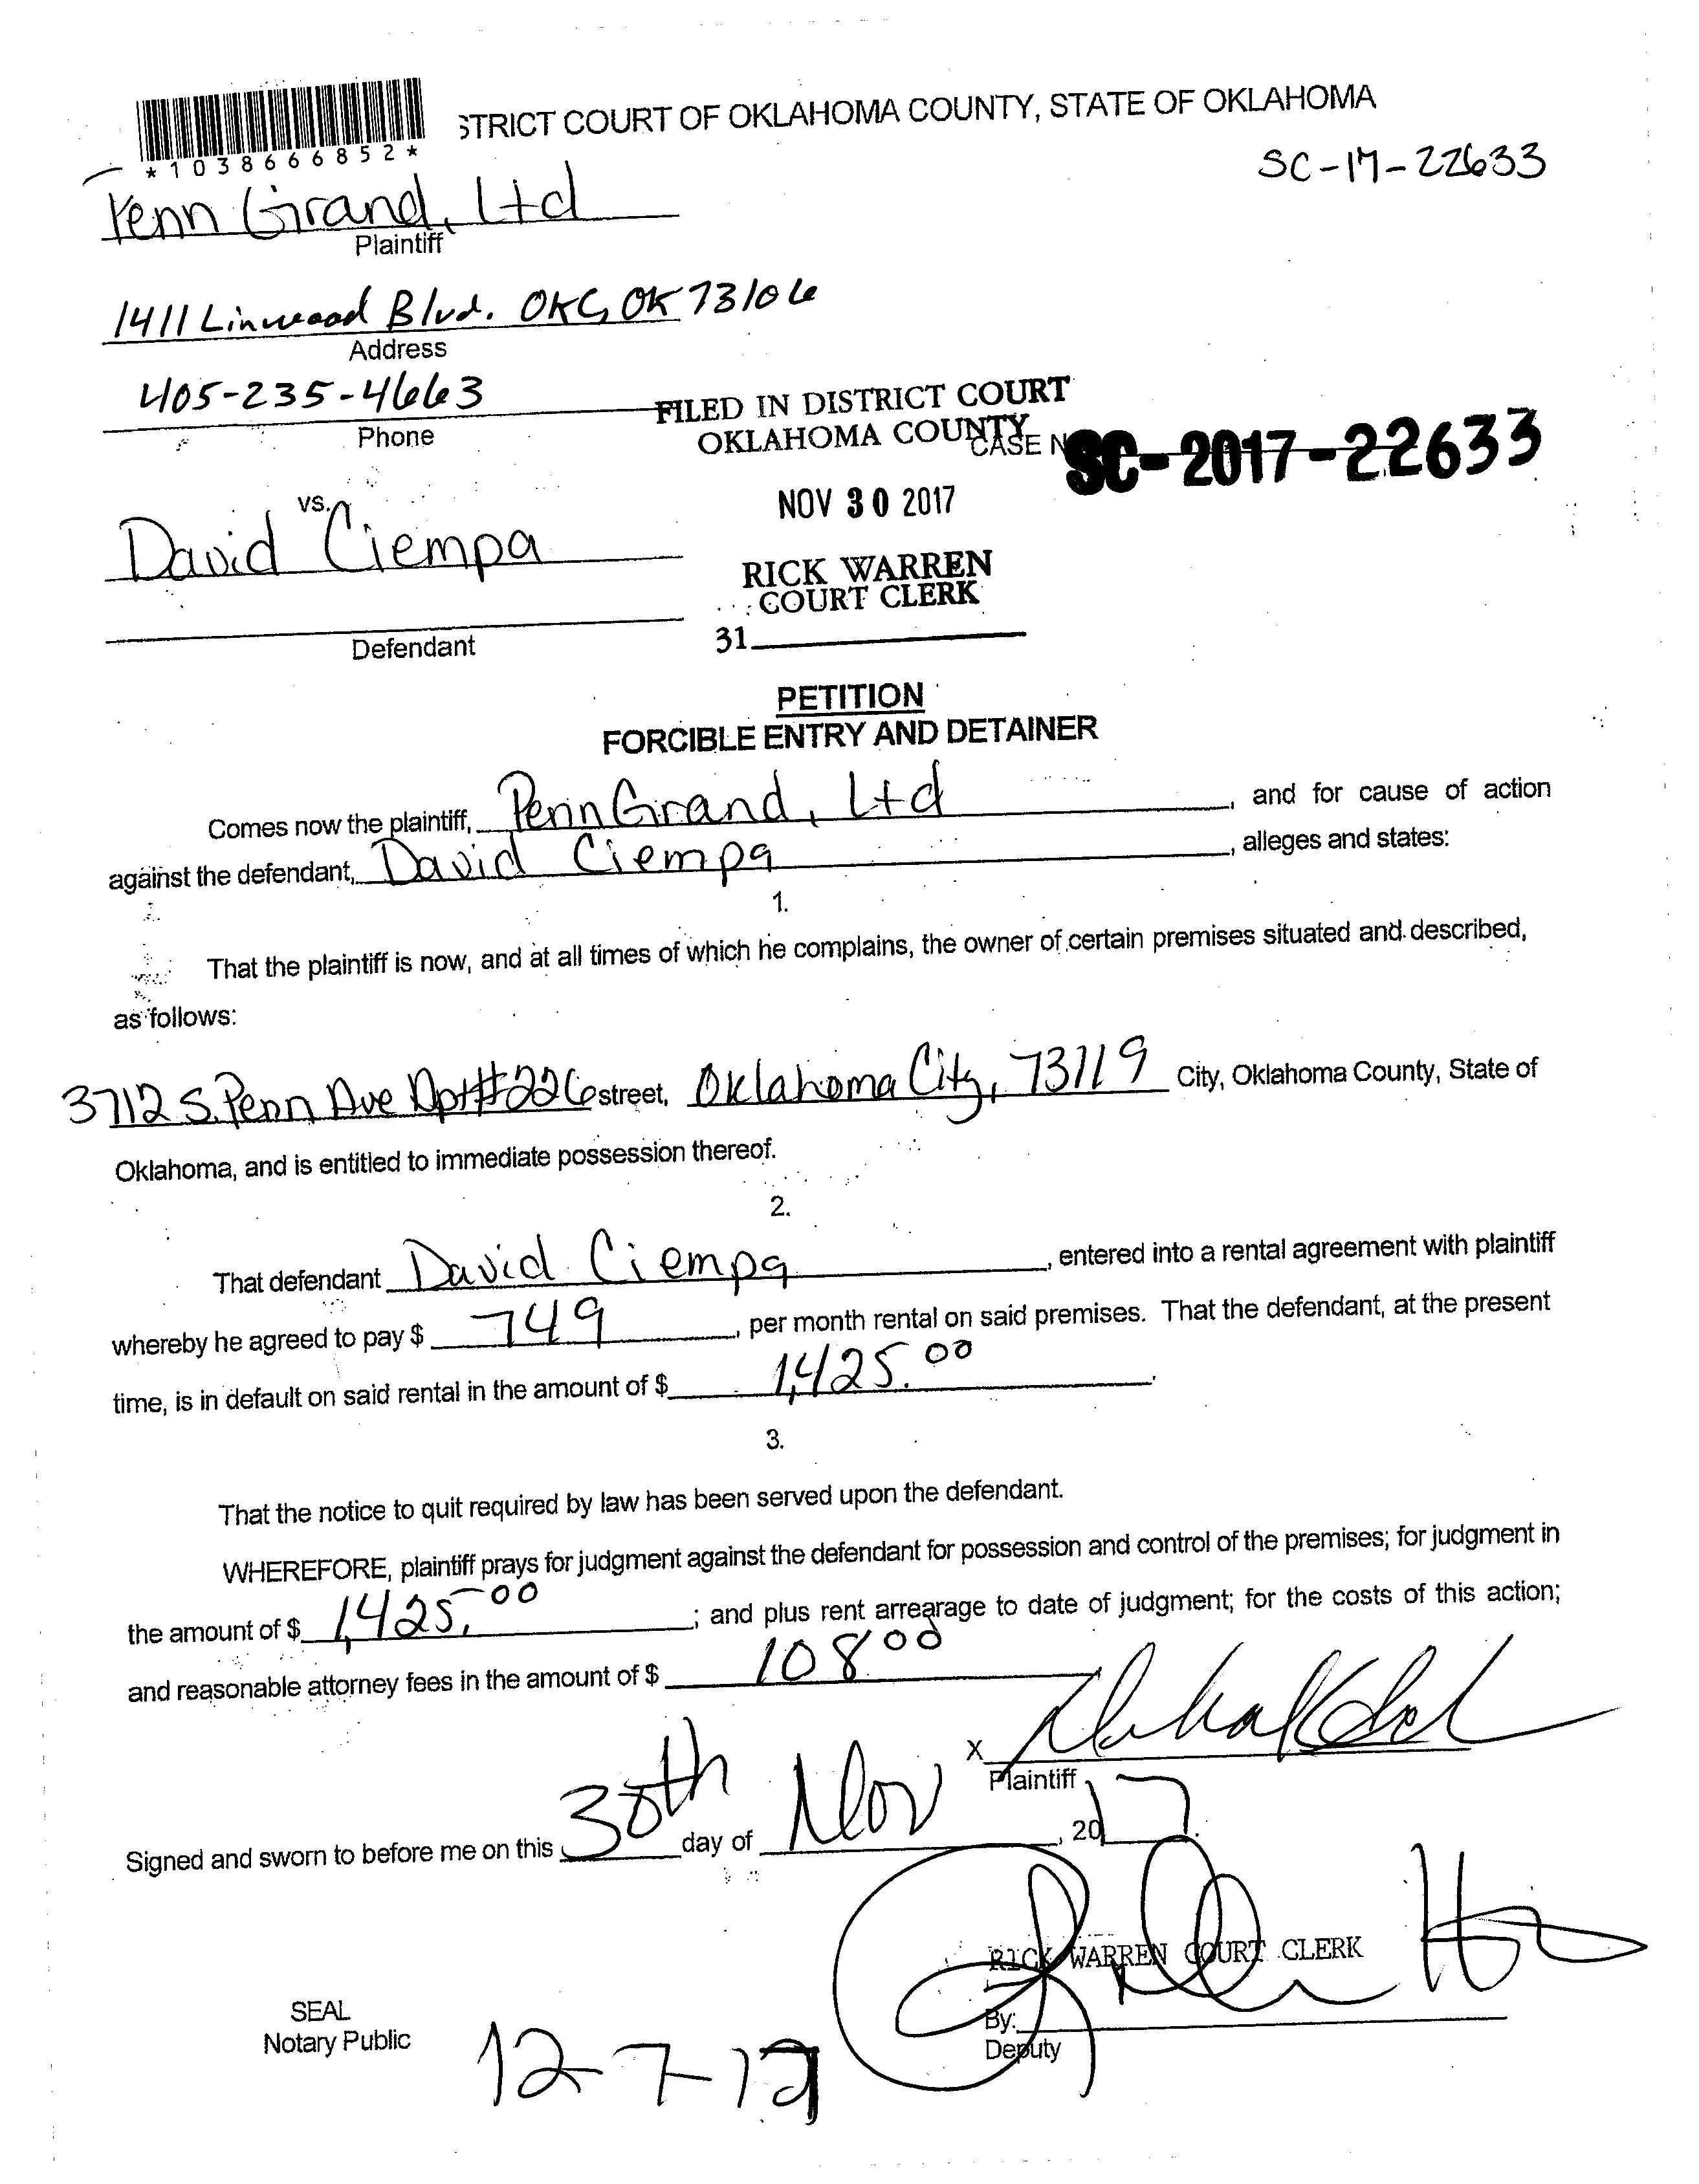 STRICT COURT OF OKLAHOMA COUNTY, STATE OF OKLAHOMA
*1038666852*
SC-17-22633
Penn Grand, Ltd
Plaintiff
1411 Linwood Blvd. OKC, OK 73106
Address
405-235-4663
Phone
FILED IN DISTRICT COURT
OKLAHOMA COUNTY
CASE N
SC-2017-22633
NOV 30 2017
vs.
David Ciempa
RICK WARREN
COURT CLERK
31
Defendant
PETITION
FORCIBLE ENTRY AND DETAINER
Comes now the plaintiff, Penn Grand, Ltd, and for cause of action
against the defendant, David Ciempa, alleges and states:
1.
That the plaintiff is now, and at all times of which he complains, the owner of certain premises situated and described,
as follows:
3712 S. Penn Ave Apt#226 street, Oklahoma City, 73119 City, Oklahoma County, State of
Oklahoma, and is entitled to immediate possession thereof.
2.
That defendant David Ciempa, entered into a rental agreement with plaintiff
whereby he agreed to pay $ 749, per month rental on said premises. That the defendant, at the present
time, is in default on said rental in the amount of $ 1,425.00.
3.
That the notice to quit required by law has been served upon the defendant.
WHEREFORE, plaintiff prays for judgment against the defendant for possession and control of the premises; for judgment in
the amount of $ 1,425.00; and plus rent arrearage to date of judgment; for the costs of this action;
and reasonable attorney fees in the amount of $ 108 00
X
Plaintiff
Signed and sworn to before me on this 30th day of Nov, 2017.
RICK WARREN COURT CLERK
SEAL
Notary Public
By:
Deputy
12-7-17